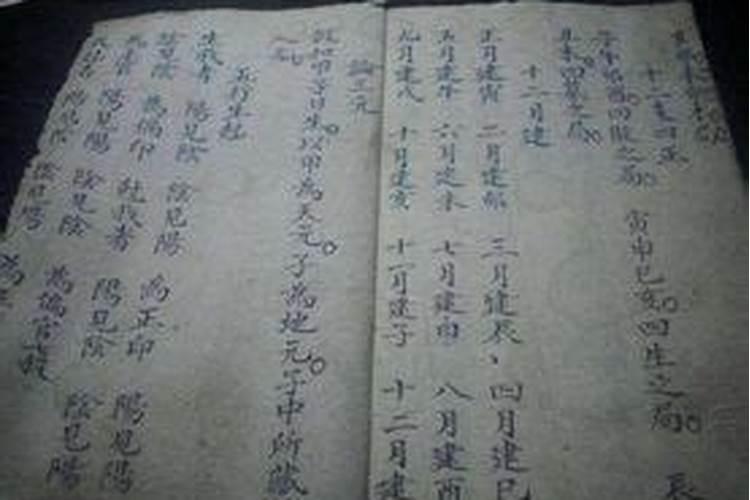 十二支四正
子午卯酉。四敗之局。寅申巳亥。四生之局。辰
丑未。四墓之局。
十二月建
正月建寅 二月建卯 三月建辰、四月建巳
五月建午 六月建未 七月建申 八月建酉
九月建戌 十月建亥 十一月建子 十二月建
論三元
假如甲子日生。以甲為天元。子為地元。子中所藏
五行生尅
生我者 陽見陰 陰見陽 為正印 陽見陽
陰見陰 為偏印 尅我者 陽見陰 陰見陽
陽見陽 陰見陰 為偏官
陰見陽